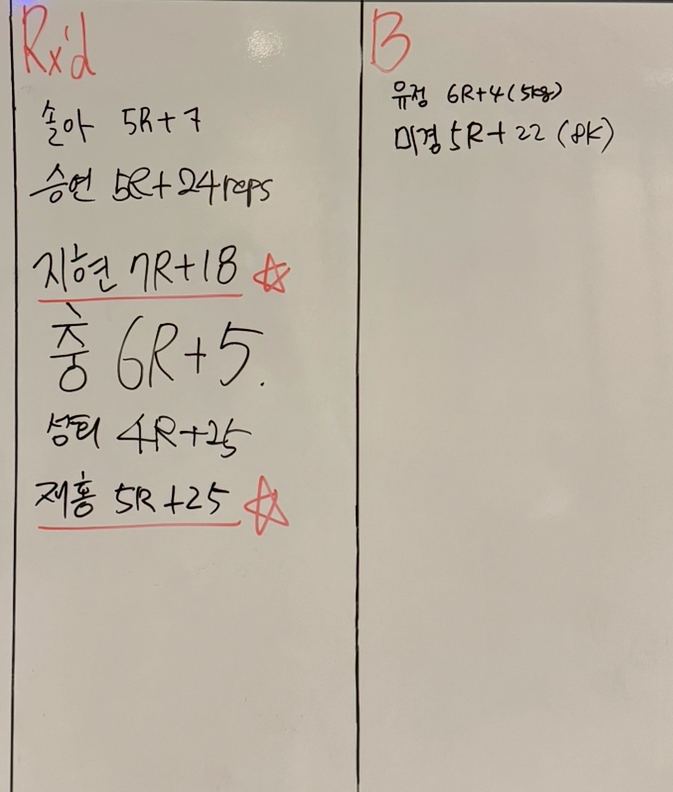 Rx'd
솔아 5R+7
승연 5R+24reps
지현 7R+18 ☆
충 6R+5.
성터 4R+25
제홍 5R+25 ☆
B
유정 6R+4(5kg)
미경 5R+22 (8K)